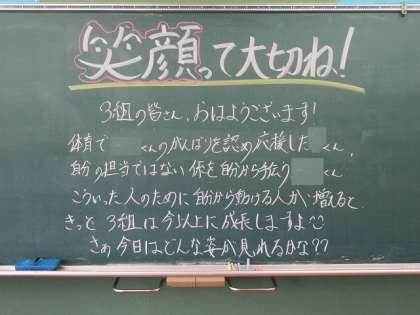 笑顔って大切ね!
3組の皆さん、おはようございます!
体育で くんのがんばりを認め応援した くん、
自分の担当ではない係を自分から手伝う くん
こういった人のために自分から動ける人が増えると、
きっと3組は今以上に成長しますよ
さぁ今日はどんな姿が見れるかな??